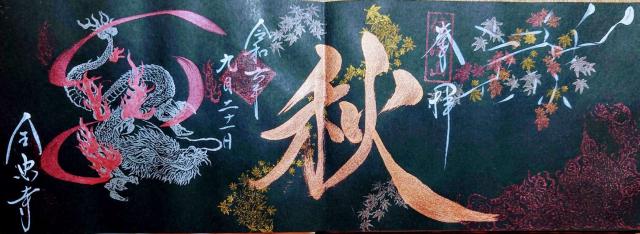 奉拝
秋
令和六年
九月二十一日
全忠寺